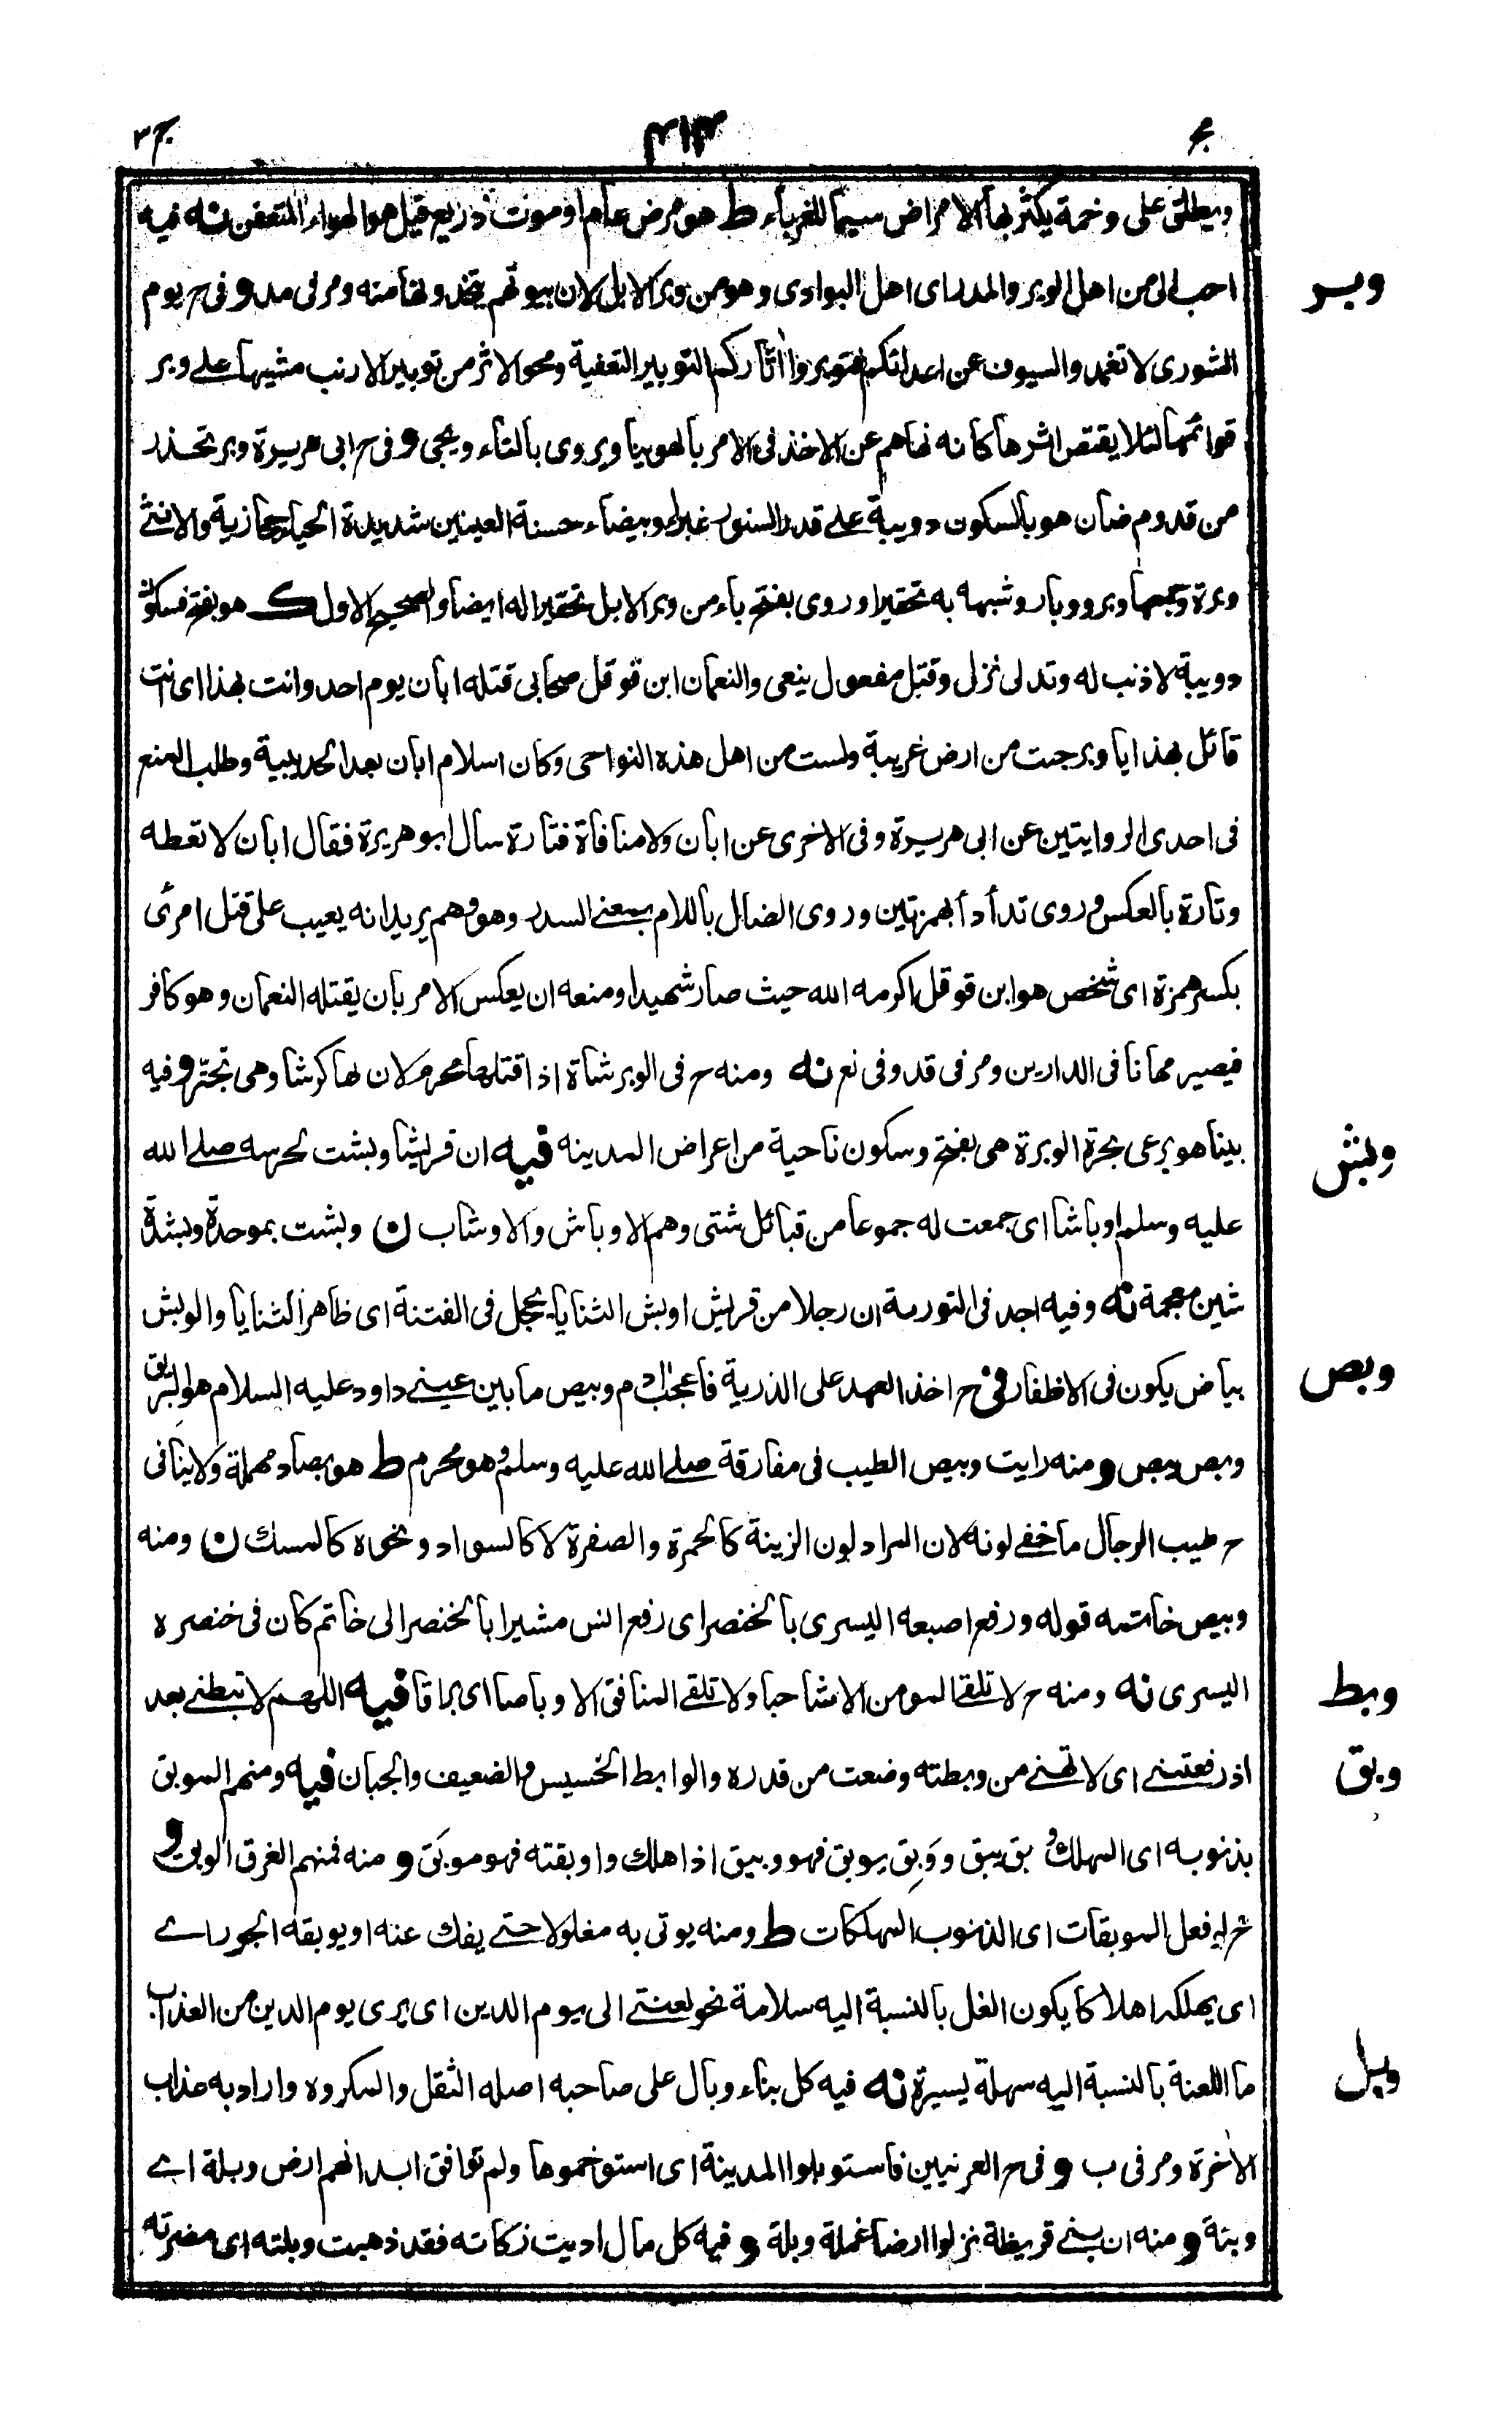 مج ۴۱۳ ج۳
ويطلق على وخمة يكثر بها الامراض سيما للغرباء ط هو مرض عام او موت ذريع قيل هو الهواء المتعفن نه فيه
وبر
احب الى من اهل الوبر والمدر اى اهل البوادى وهو من وبر الابل لان بيوتهم يتخذونها منه ومر فى مدر و فى ح يوم
الشورى لا تغمدوا السيوف عن اعدائكم فتوبروا اثاركم التوبير التعفية ومحو الاثر من توبير الارنب مشيها على وبر
قوائمها لئلا يقتص اثرها كانه نهاهم عن الاخذ فى الامر بالهوينا ويروى بالتاء ويجى و فى ح ابى هريرة وبر تحدر
من قدوم ضان هو بالسكون دويبة على قدر السنور غبراء وبيضاء حسنة العينين شديدة الحياء حجازية والانثى
وبرة وجمعها وبر ووبار وشبهه به تحقيرا وروى بفتح باء من وبر الابل تحقيرا له ايضا والصحيح الاول ك هو بفتح فسكون
دويبة لا ذنب له وتدلى نزل وقتل مفعول ينعى والنعمان ابن قوقل صحابى قتله ابان يوم احد وانت بهذا اى انت
قائل بهذا ايا وبر جئت من ارض غريبة ولست من اهل هذه النواحى وكان اسلام ابان بعد الحديبية وطلب المنع
فى احدى الروايتين عن ابى هريرة وفى الاخرى عن ابان ولا منافاة فتارة سال ابو هريرة فقال ابان لا تعطه
وتارة بالعكس و روى تدأدأ بهمزتين وروى الضال باللام بمعنى السدر وهو وهم يريد انه يعيب على قتل امرئ
بكسر همزة اى شخص هو ابن قوقل اكرمه الله حيث صار شهيدا ومنعه ان يعكس الامر بان يقتله النعمان وهو كافر
فيصير مهانا فى الدارين ومر فى قد وفى نع نه ومنه ح فى الوبر شاة اذا قتلها محرم لان لها كرشا وهى تجتر و فيه
وبش
بينا هو يرعى بحرة الوبرة هى بفتح وسكون ناحية من اعراض المدينه فيه ان قريشا وبشت لحربه صلى الله
عليه وسلم اوباشا اى جمعت له جموعا من قبائل شتى وهم الاوباش والاوشاب ن وبشت بموحدة وبشدة
شين معجمة نه وفيه اجد فى التورىة ان رجلا من قريش اوبش الثنايا يحجل فى الفتنة اى ظاهر الثنايا والوبش
وبص
بياض يكون فى الاظفار فى ح اخذ العهد على الذرية فاعجب ادم وبيص ما بين عينى داود عليه السلام هو البريق
وبص يبص و منه رايت وبيص الطيب فى مفارقة صلى الله عليه وسلم وهو محرم ط هو بصاد مهملة ولا ينافى
ح طيب الرجال ما خفى لونه لان المراد لون الزينة كالحمرة والصفرة لا كالسواد ونحوه كالمسك ن ومنه
وبيص خاتمه قوله ورفع اصبعه اليسرى بالخنصر اى رفع انس مشيرا بالخنصر الى خاتم كان فى خنصره
وبط
اليسرى نه ومنه ح لا تلقى المومن الا شاحبا ولا تلقى المنافق الا وباصا اى براقا فيه اللهم لا تبطنى بعد
وبق
اذ رفعتنى اى لا تهنى من وبطته وضعت من قدره والوابط الخسيس والضعيف والجبان فيه ومنهم الموبق
بذنوبه اى المهلك وبق يبق ووَبِق يوبق فهو وبيق اذا هلك واوبقته فهو موبَق و منه فمنهم الغرق الوبق و
ح لو فعل الموبقات اى الذنوب المهلكات ط ومنه يوتى به مغلولا حتى يفك عنه او يوبقه الجور اى
اى يهلكه اهلاكا يكون الغل بالنسبة اليه سلامة نحو لعنتى الى يوم الدين اى يرى يوم الدين من العذاب
وبل
ما اللعنة بالنسبة اليه سهلة يسيرة نه فيه كل بناء وبال على صاحبه اصله الثقل والمكروه واراد به عذاب
الاخرة ومر فى ب و فى ح العرنيين فاستوبلوا المدينة اى استوخموها ولم توافق ابدانهم ارض وبلة اى
وبئة و منه ان بنى قريظة نزلوا ارضا غملة وبلة و فيه كل مال اديت زكاته فقد ذهبت وبلته اى مضرته